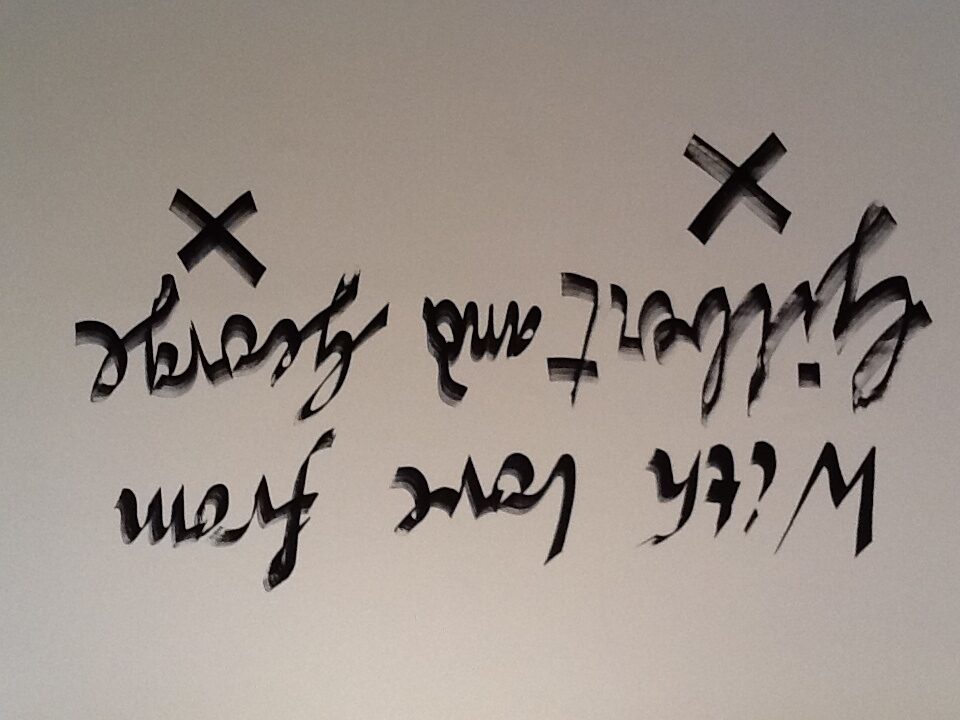 With love from
Gilbert and George
X X